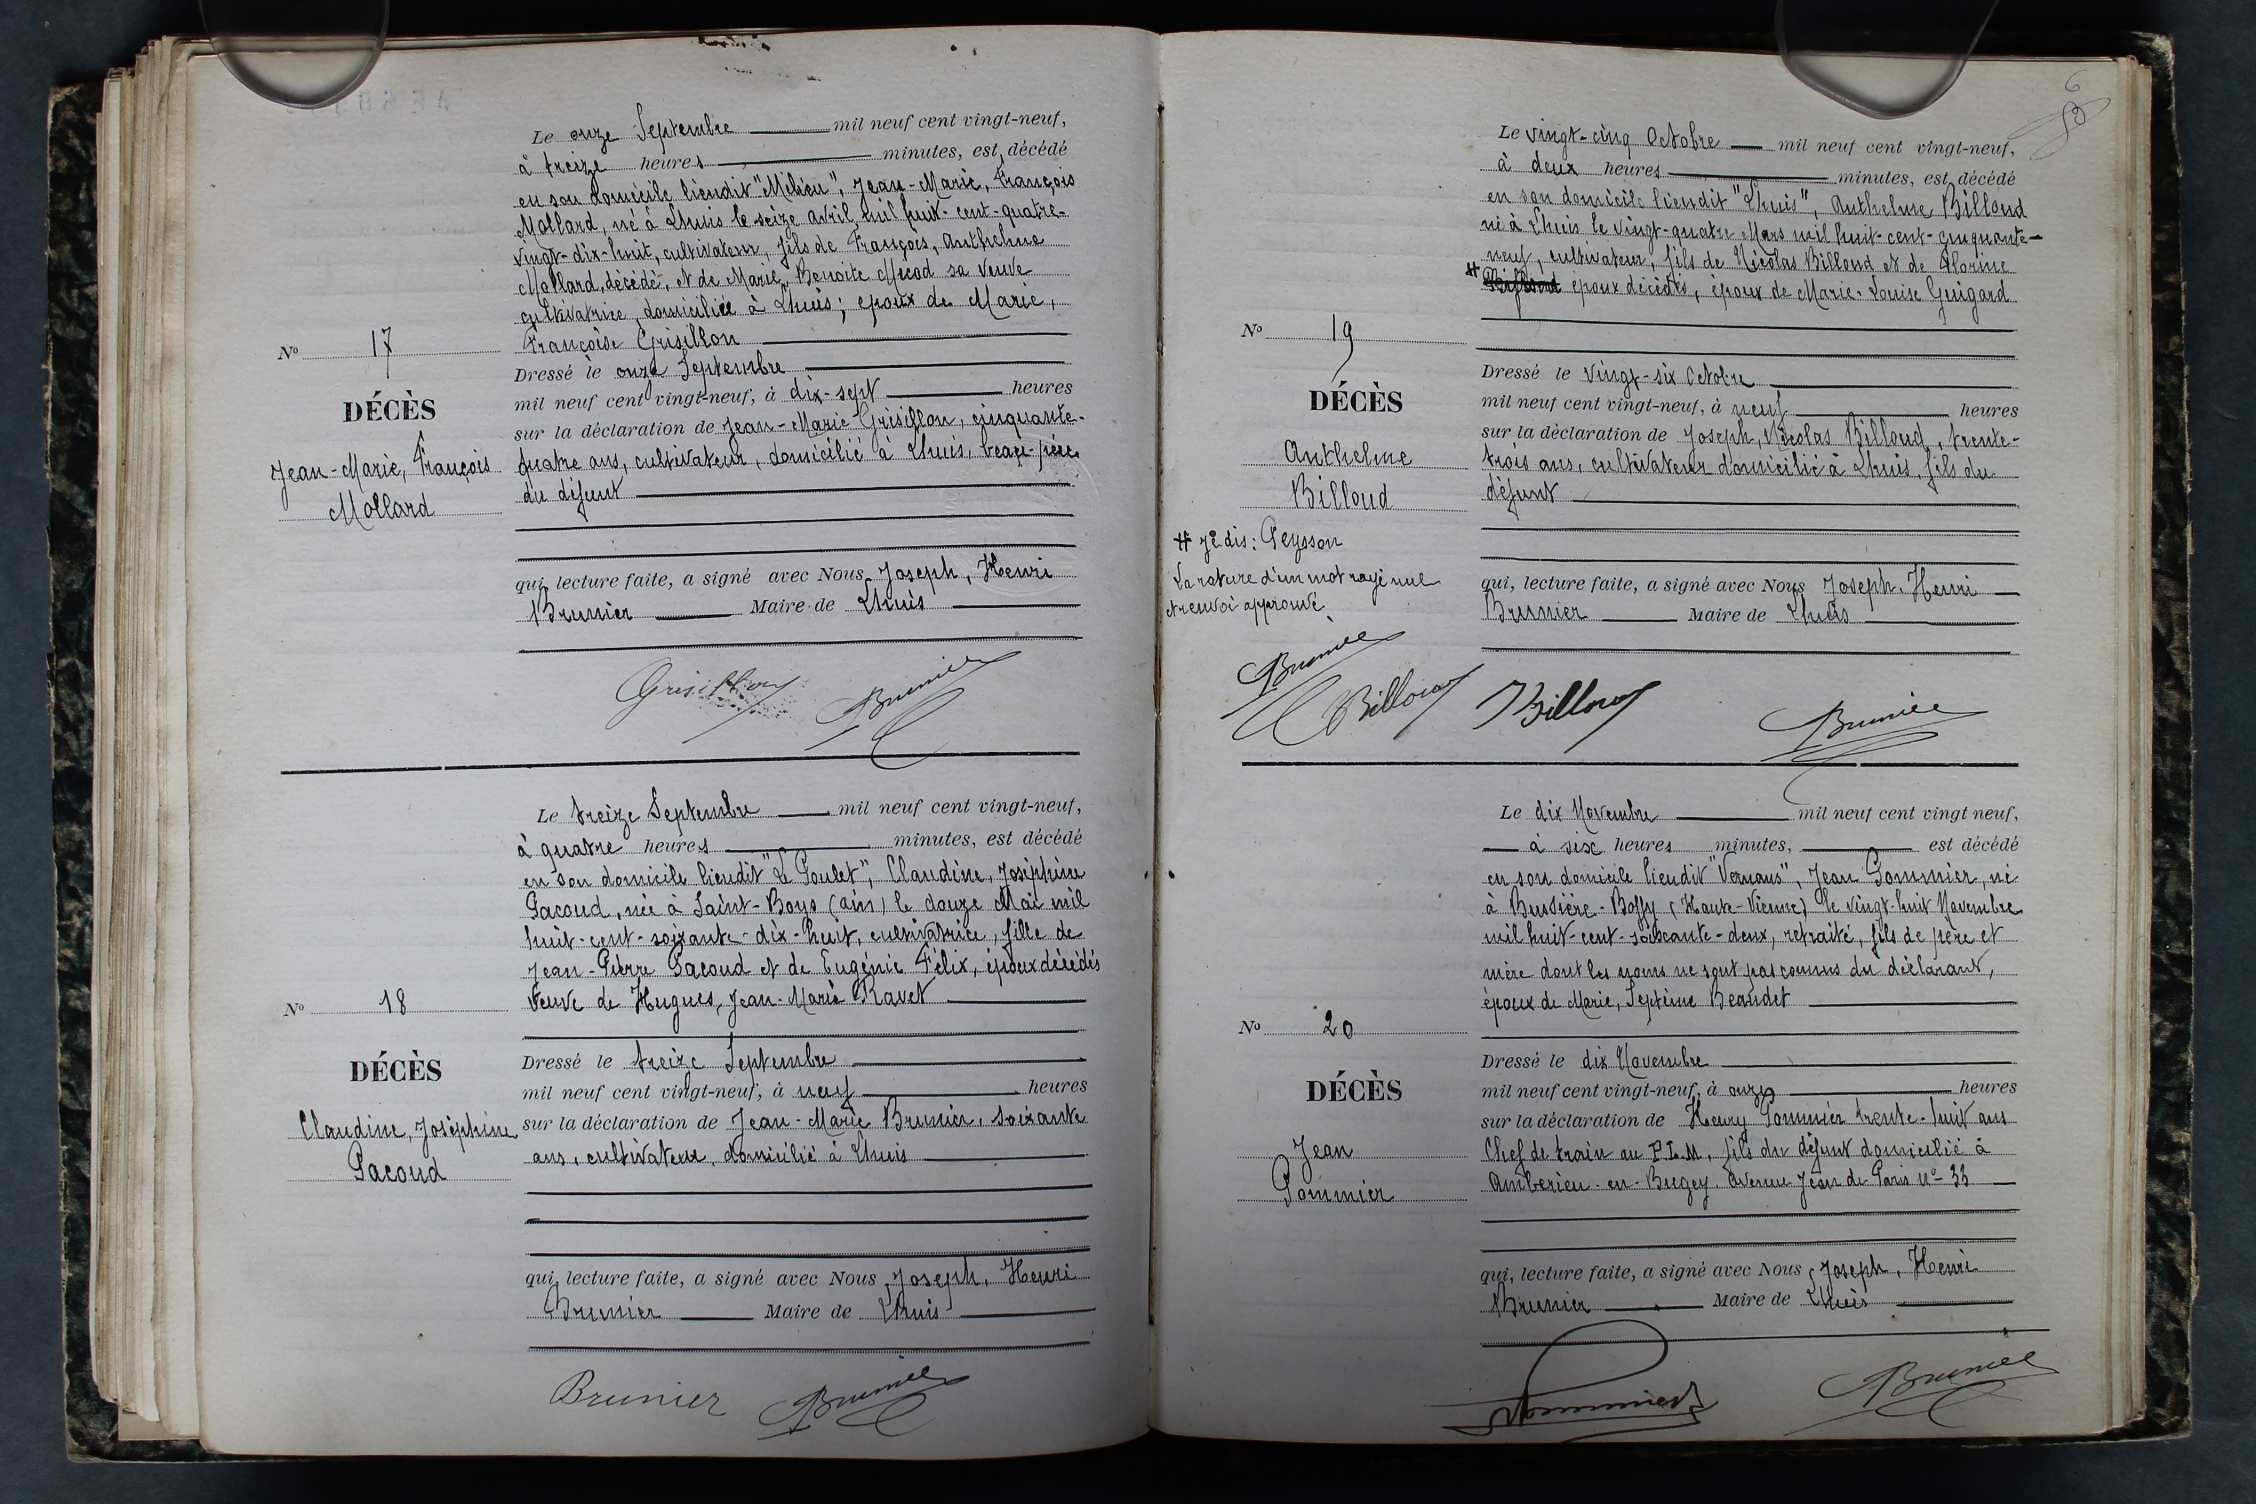 Le onze Septembre mil neuf cent vingt-neuf,
à treize heures minutes, est décédé
en son domicile lieudit "Milieu", Jean-Marie, François
Mollard, né à Lhuis le seize avril mil huit-cent-quatre-
vingt-dix-huit, cultivateur, fils de François, Anthelme
Mollard, décédé, et de Marie, Benoite Micod sa veuve
cultivatrice, domiciliée à Lhuis; époux de Marie,
Françoise Grisillon
Dressé le onze Septembre
mil neuf cent vingt-neuf, à dix-sept heures
sur la déclaration de Jean-Marie Grisillon, cinquante-
quatre ans, cultivateur, domicilié à Lhuis, beau-père
du défunt
qui, lecture faite, a signé avec Nous Joseph, Henri
Brunier Maire de Lhuis
Nº 17
DÉCÈS
Jean-Marie, François
Mollard
Grisillon Brunier
Le treize Septembre mil neuf cent vingt-neuf,
à quatre heures minutes, est décédé
en son domicile lieudit "Le Poulet", Claudine, Joséphine
Pacoud, née à Saint-Bois (Ain) le douze Mai mil
huit-cent-soixante-dix-huit, cultivatrice, fille de
Jean-Pierre Pacoud et de Eugénie Félix, époux décédés
Veuve de Hugues, Jean-Marie Ravet
Dressé le treize Septembre
mil neuf cent vingt-neuf, à neuf heures
sur la déclaration de Jean-Marie Brunier, soixante
ans, cultivateur, domicilié à Lhuis
qui, lecture faite, a signé avec Nous Joseph, Henri
Brunier Maire de Lhuis
Nº 18
DÉCÈS
Claudine, Joséphine
Pacoud
Brunier Brunier
6
Le vingt-cinq Octobre mil neuf cent vingt-neuf,
à deux heures minutes, est décédé
en son domicile lieudit "Lhuis", Anthelme Billoud
né à Lhuis le vingt-quatre Mars mil huit-cent-cinquante-
neuf, cultivateur, fils de Nicolas Billoud et de Florine
# époux décédés, époux de Marie-Louise Guigard
Dressé le vingt-six Octobre
mil neuf cent vingt-neuf, à neuf heures
sur la déclaration de Joseph, Nicolas Billoud, trente-
trois ans, cultivateur domicilié à Lhuis, fils du
défunt
qui, lecture faite, a signé avec Nous Joseph, Henri
Brunier Maire de Lhuis
Nº 19
DÉCÈS
Anthelme
Billoud
# je dis: Peysson
La rature d'un mot rayé nul
et renvoi approuvé
Brunier
Billoud Billoud Brunier
Le dix Novembre mil neuf cent vingt neuf,
à six heures minutes, est décédé
en son domicile lieudit "Vernans", Jean Pommier, né
à Bussière-Boffy (Haute-Vienne) le vingt-huit Novembre
mil huit-cent-soixante-deux, retraité, fils de père et
mère dont les noms ne sont pas connus du déclarant,
époux de Marie, Septime Beaudet
Dressé le dix Novembre
mil neuf cent vingt-neuf, à onze heures
sur la déclaration de Henry Pommier trente-huit ans
Chef de train au P.L.M, fils du défunt domicilié à
Ambérieu-en-Bugey. Avenue Jean de Paris nº 33
qui, lecture faite, a signé avec Nous Joseph, Henri
Brunier Maire de Lhuis
Nº 20
DÉCÈS
Jean
Pommier
Pommier Brunier